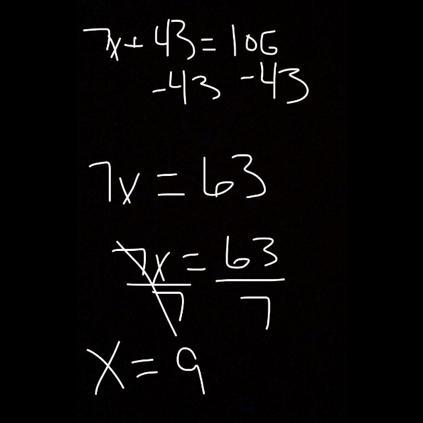 7x + 43 = 106
-43 -43
7x = 63
7x = 63
7 7
x = 9